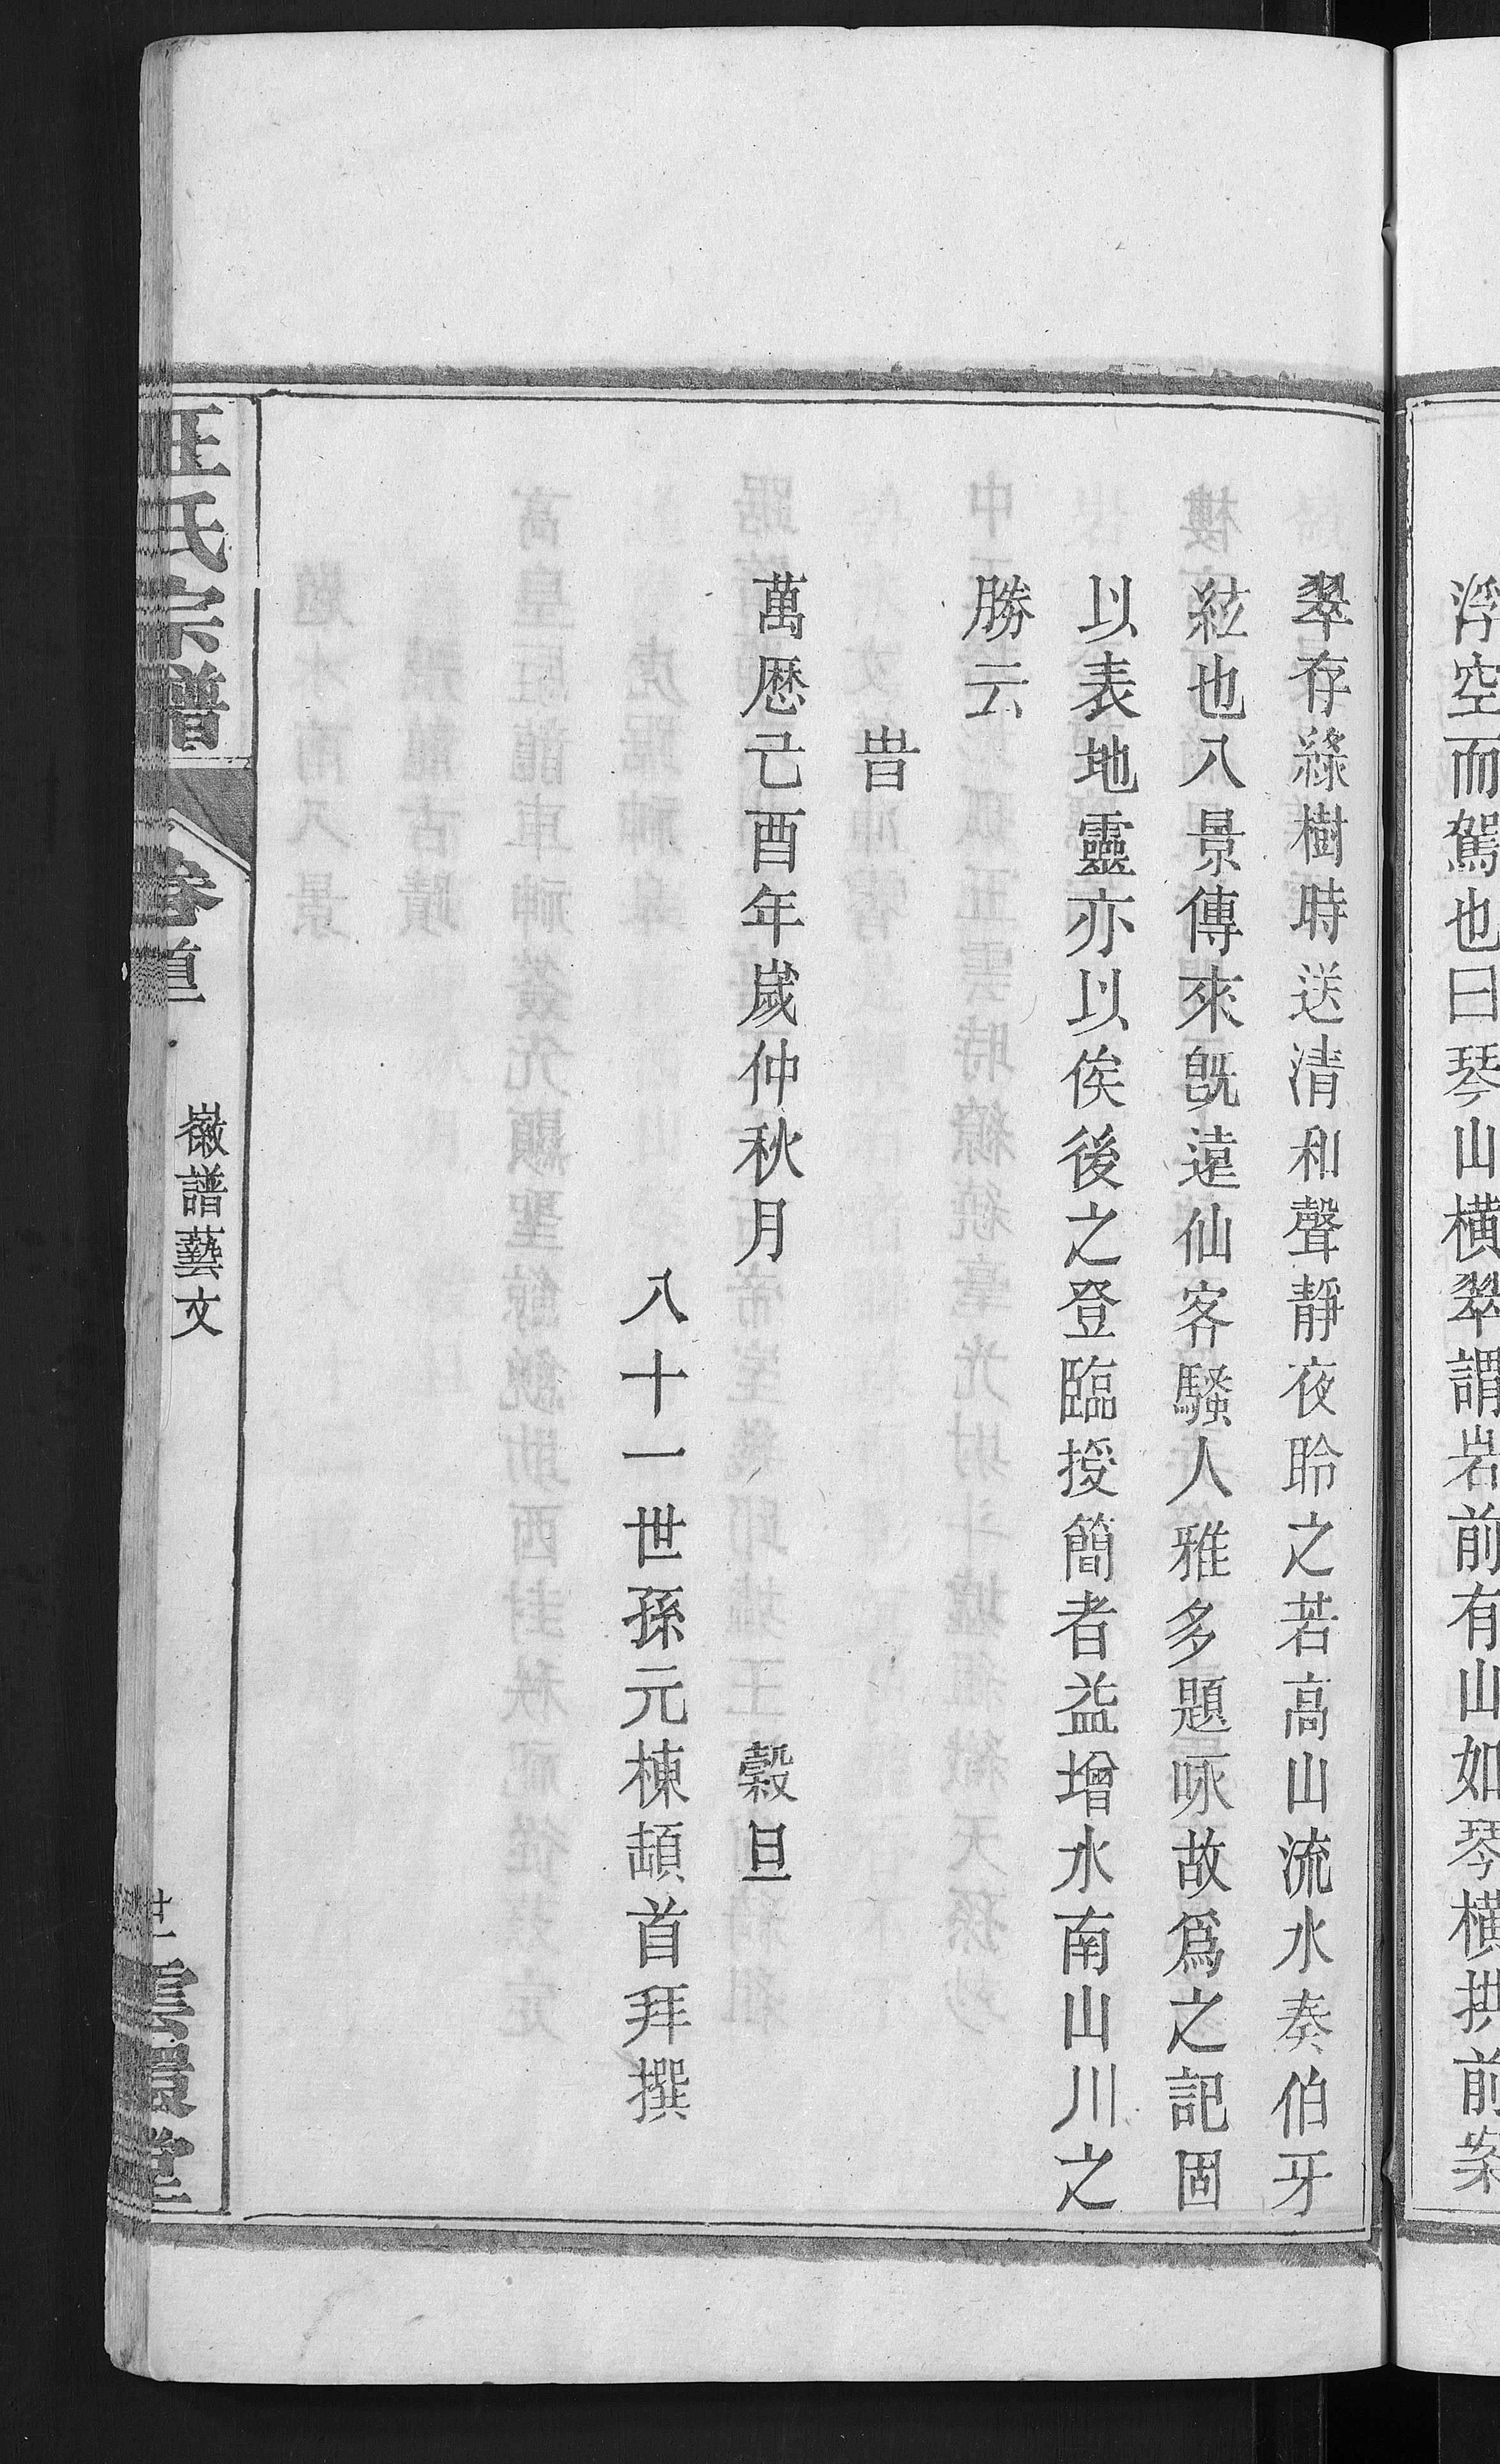 浮空而駕也曰琴山橫翠謂岩前有山如琴橫拱前案
翠存綠樹時送清和聲靜夜聆之若高山流水奏伯牙
絃也八景傳來旣遠仙客騷人雅多題咏故爲之記固
以表地靈亦以俟後之登臨授簡者益增水南山川之
勝云
旹
萬歷己酉年歲仲秋月 穀旦
八十一世孫元棟頡首拜撰
氏宗譜
卷首
徽譜藝文
廿一
堂